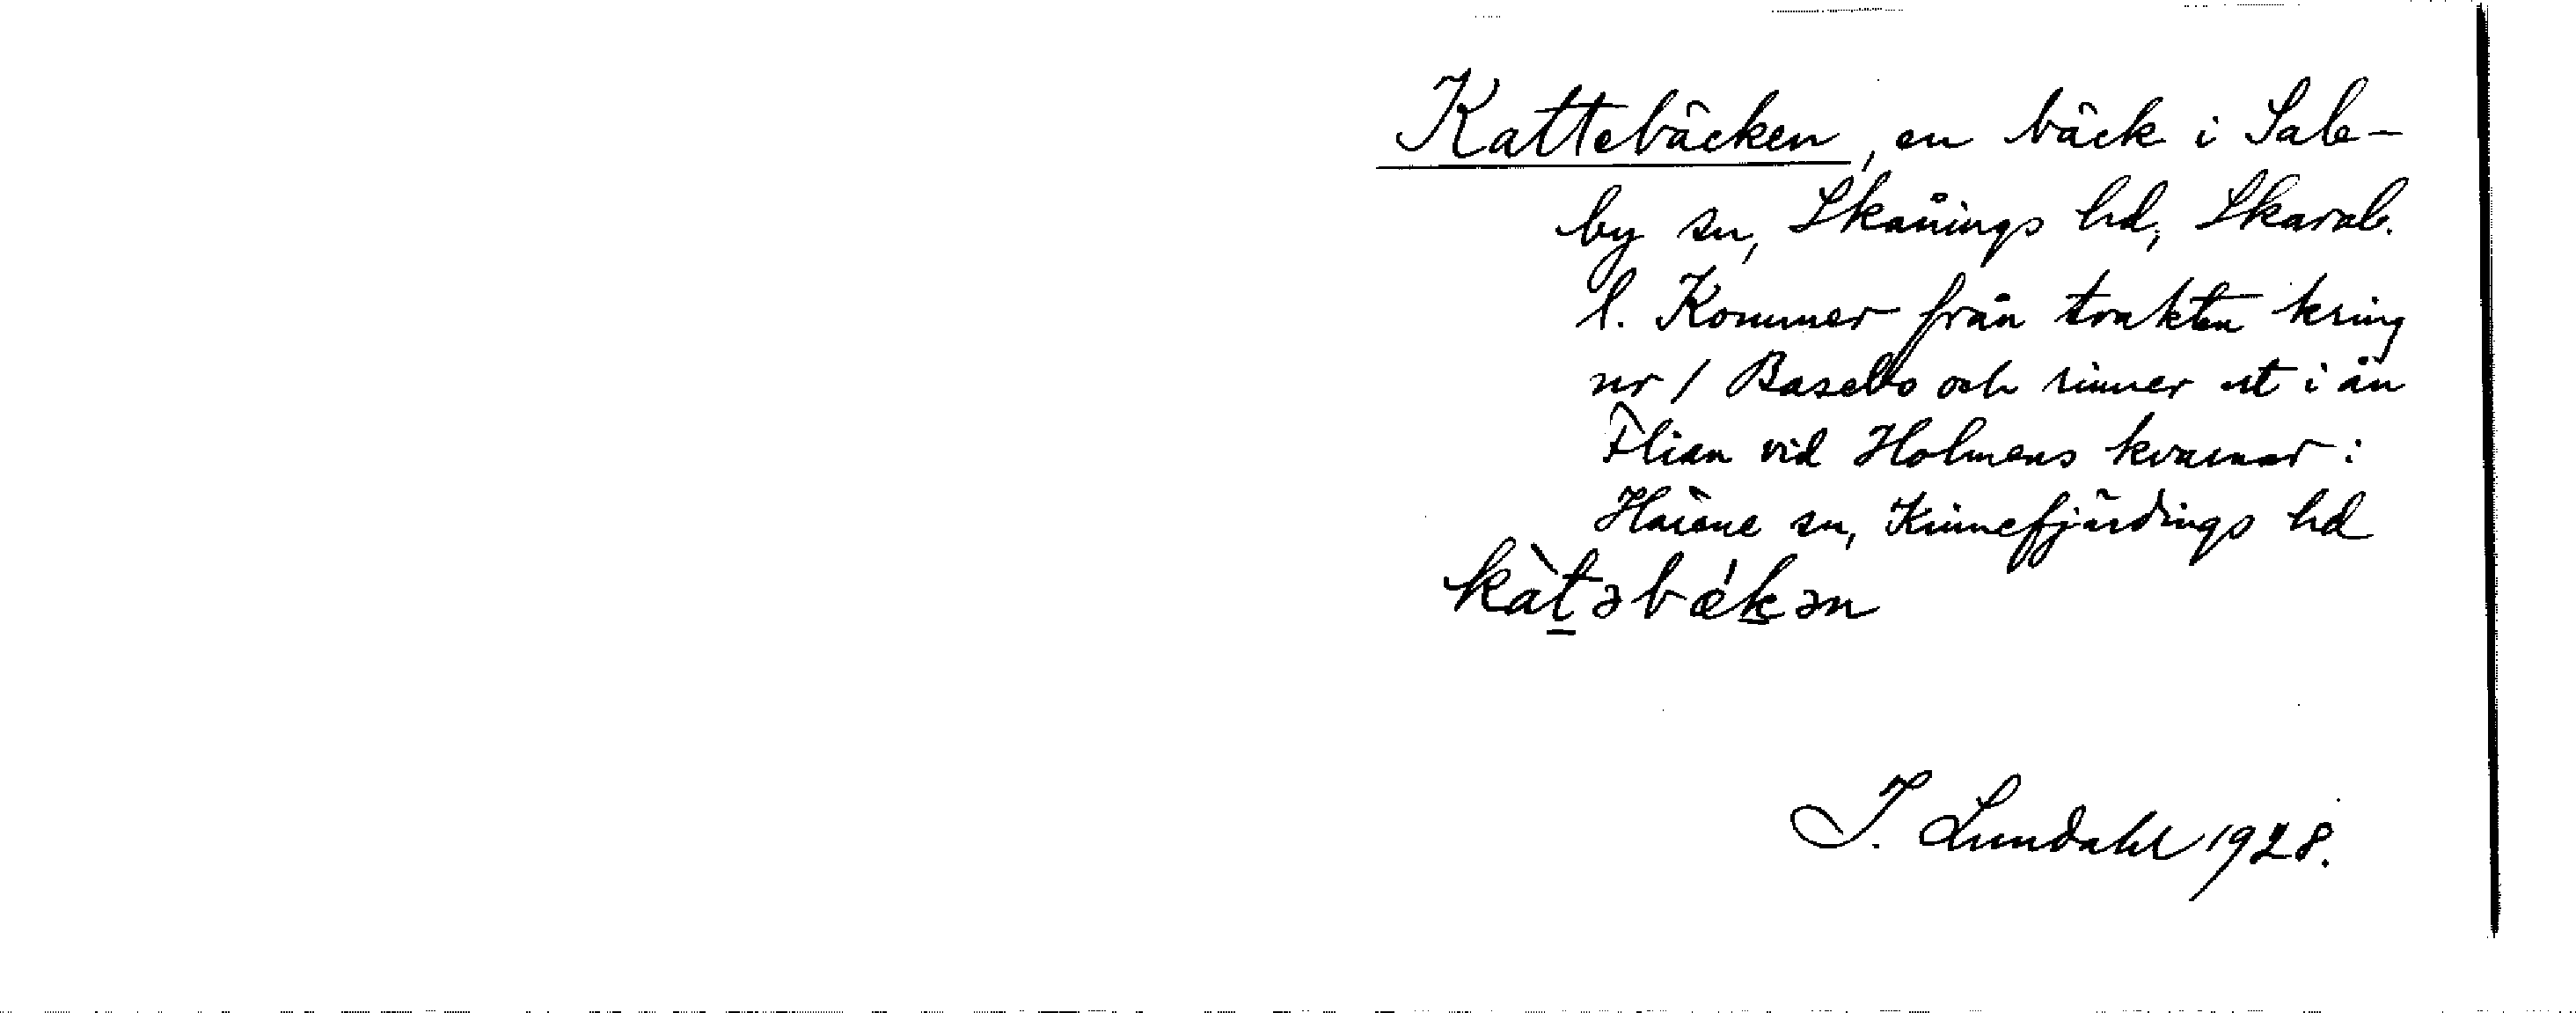 Kattebäcken, en bäck i Sale-
by sn, Skånings hd, Skarab.
l. Kommer från trakten kring
nr 1 Basebo och rinner ut i ån
Flian vid Holmens kvarnar i
Härene sn, Kinnefjärdings hd
kàt̠əbǽk̠ən
I. Lundahl 1928.